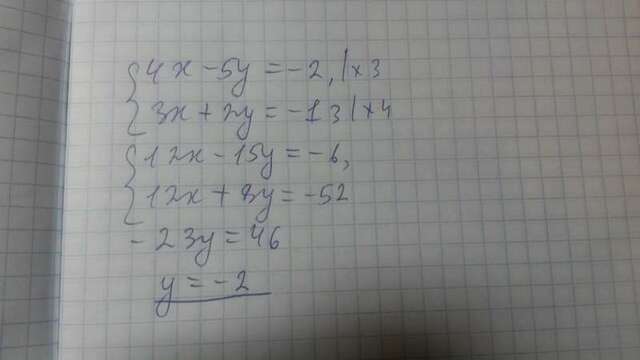 {4x-5y=-2, |x3
{3x+2y=-13 |x4
{12x-15y=-6,
{12x+8y=-52
-23y=46
y=-2